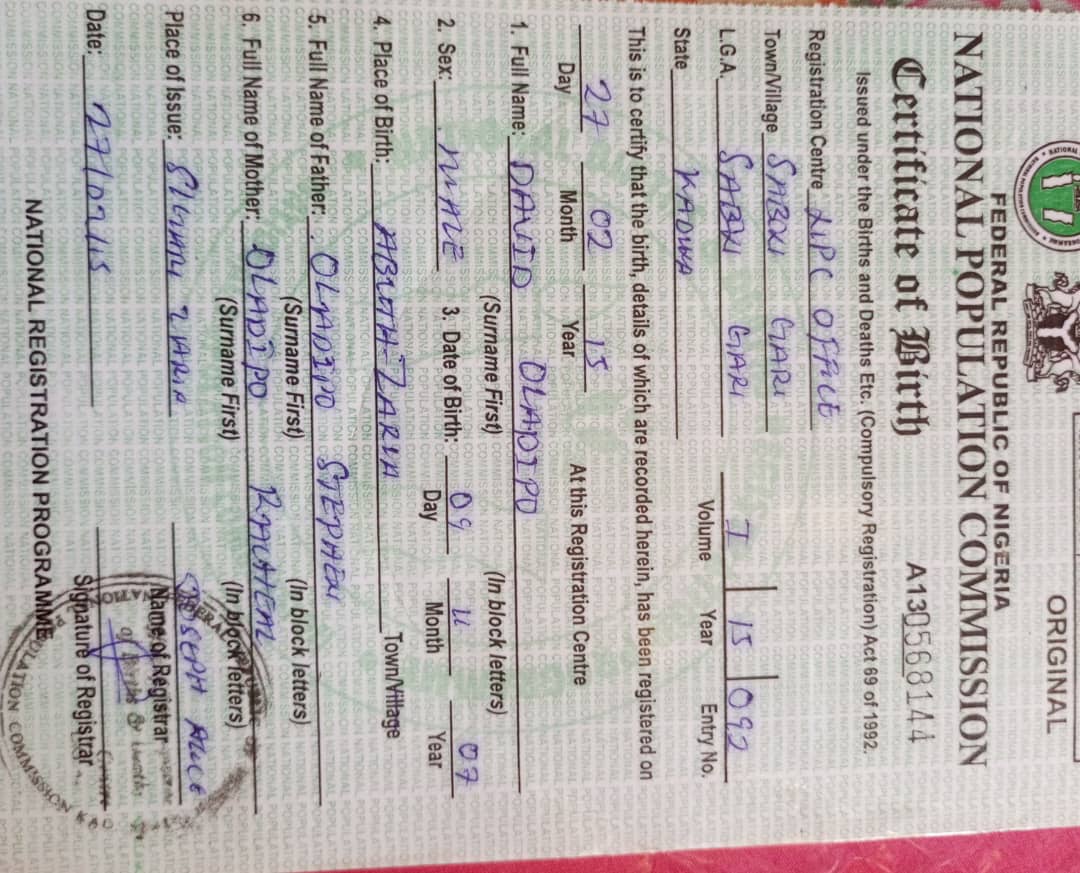 ORIGINAL
FEDERAL REPUBLIC OF NIGERIA
NATIONAL POPULATION COMMISSION
Certificate of Birth A130568144
Issued under the Births and Deaths Etc. (Compulsory Registration) Act 69 of 1992.
Registration Centre OFFICE
Town/Village SABON GARI
L.G.A. SABON GARI I 15 092
Volume Year Entry No.
State KADUNA
This is to certify that the birth, details of which are recorded herein, has been registered on
27 02 15 At this Registration Centre
Day Month Year
1. Full Name: DAVID OLADIPO
(Surname First) (In block letters)
2. Sex: MALE 3. Date of Birth: 09 11 07
Day Month Year
4. Place of Birth: ZARIA Town/Village
5. Full Name of Father: OLADIPO STEPHEN
(Surname First) (In block letters)
6. Full Name of Mother: OLADIPO
(Surname First) (In block letters)
Place of Issue: ZARIA JOSEPH ALICE
Name of Registrar
Date: 27/02/15
Signature of Registrar
NATIONAL REGISTRATION PROGRAMME